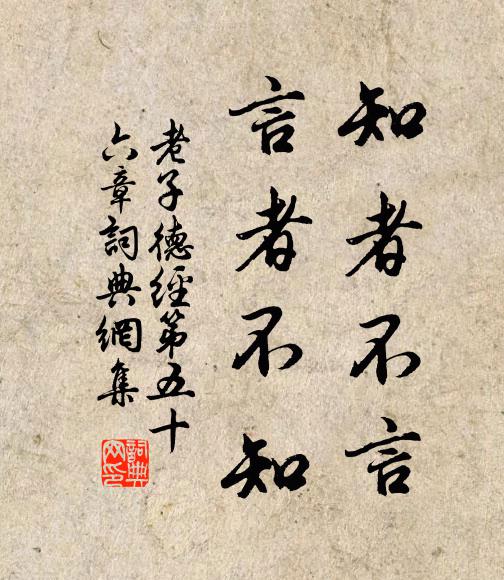 知者不言
言者不知
老子德經第五十
六章詞典網集
詞典
网印